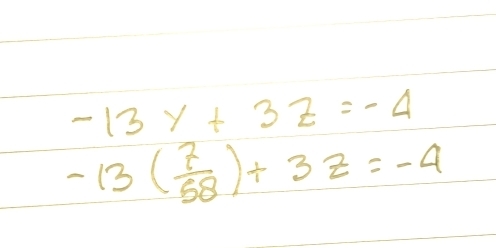 -13y + 3z = -4
-13(7/58) + 3z = -4